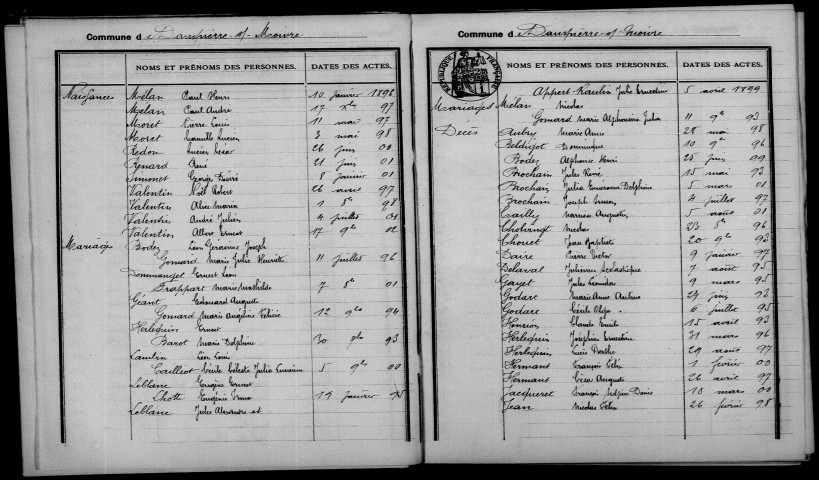 Commune d Dampierre-s/-Moivre
NOMS ET PRÉNOMS DES PERSONNES. DATES DES ACTES.
Naissances Mélan Paul Henri 10 janvier 1896
Mélan Paul André 17 Xbre 97
Moret Pierre Louis 11 mai 97
Moret Lucien 3 mai 98
Redon Lucien 26 juin 00
Renard René 21 juin 01
Simonet George Désiré 8 janvier 01
Valentin Noël Robert 26 avril 97
Valentin Alice Maria 1 8bre 98
Valentin André Julien 4 juillet 01
Valentin Albert Ernest 17 9bre 02
Mariages Bodez Léon Joseph
Gomard Marie Julie Henriette 11 juillet 96
Dommanget Ernest Léon
Frappart Marie Mathilde 7 8bre 01
Géant Edouard August
Gomard Marie Angéline Félicie 12 9bre 94
Herlequin Ernest
Barot Marie Delphine 30 9bre 93
Lambin Léon Louis
Cailliot Cécile Céleste Julia 5 9bre 00
Leblanc Eugène Ernest
Lhotte Eugénie Irma 19 janvier 95
Leblanc Jules Alexandre
Commune d Dampierre-s/-Moivre
NOMS ET PRÉNOMS DES PERSONNES. DATES DES ACTES.
RÉPUBLIQUE FRANÇAISE
Appert Julie Ernestine 5 avril 1899
Mariages Mélan Nicolas
Gomard Marie Alphonsine Julia 11 9bre 93
Décès Aubry Marie Anne 28 mai 98
Beldigot Dominique 10 9bre 96
Bodez Alphonse Henri 25 juin 99
Brochain Jules René 15 mai 93
Brochain Julia Delphine 5 mars 01
Brochain Joseph 4 juillet 97
Cailly Augustin 5 août 01
Nicolas 23 8bre 96
Chouet Jean Baptiste 20 9bre 93
Daire Pierre Victor 9 janvier 97
Delaval Julienne Scolastique 7 août 95
Gayet Jules Léonidas 9 mars 95
Godart Marie Anne 24 juin 93
Godart Cécile Olga 6 juillet 95
Henrion Claude Emile 15 avril 93
Herlequin Joséphine Ernestine 31 mars 96
Herlequin Lucie Berthe 29 août 97
Hermant François Félix 1 février 00
Hermant August 26 avril 97
Jacqueret François Denis 10 mars 00
Jean Nicolas Félix 26 février 98